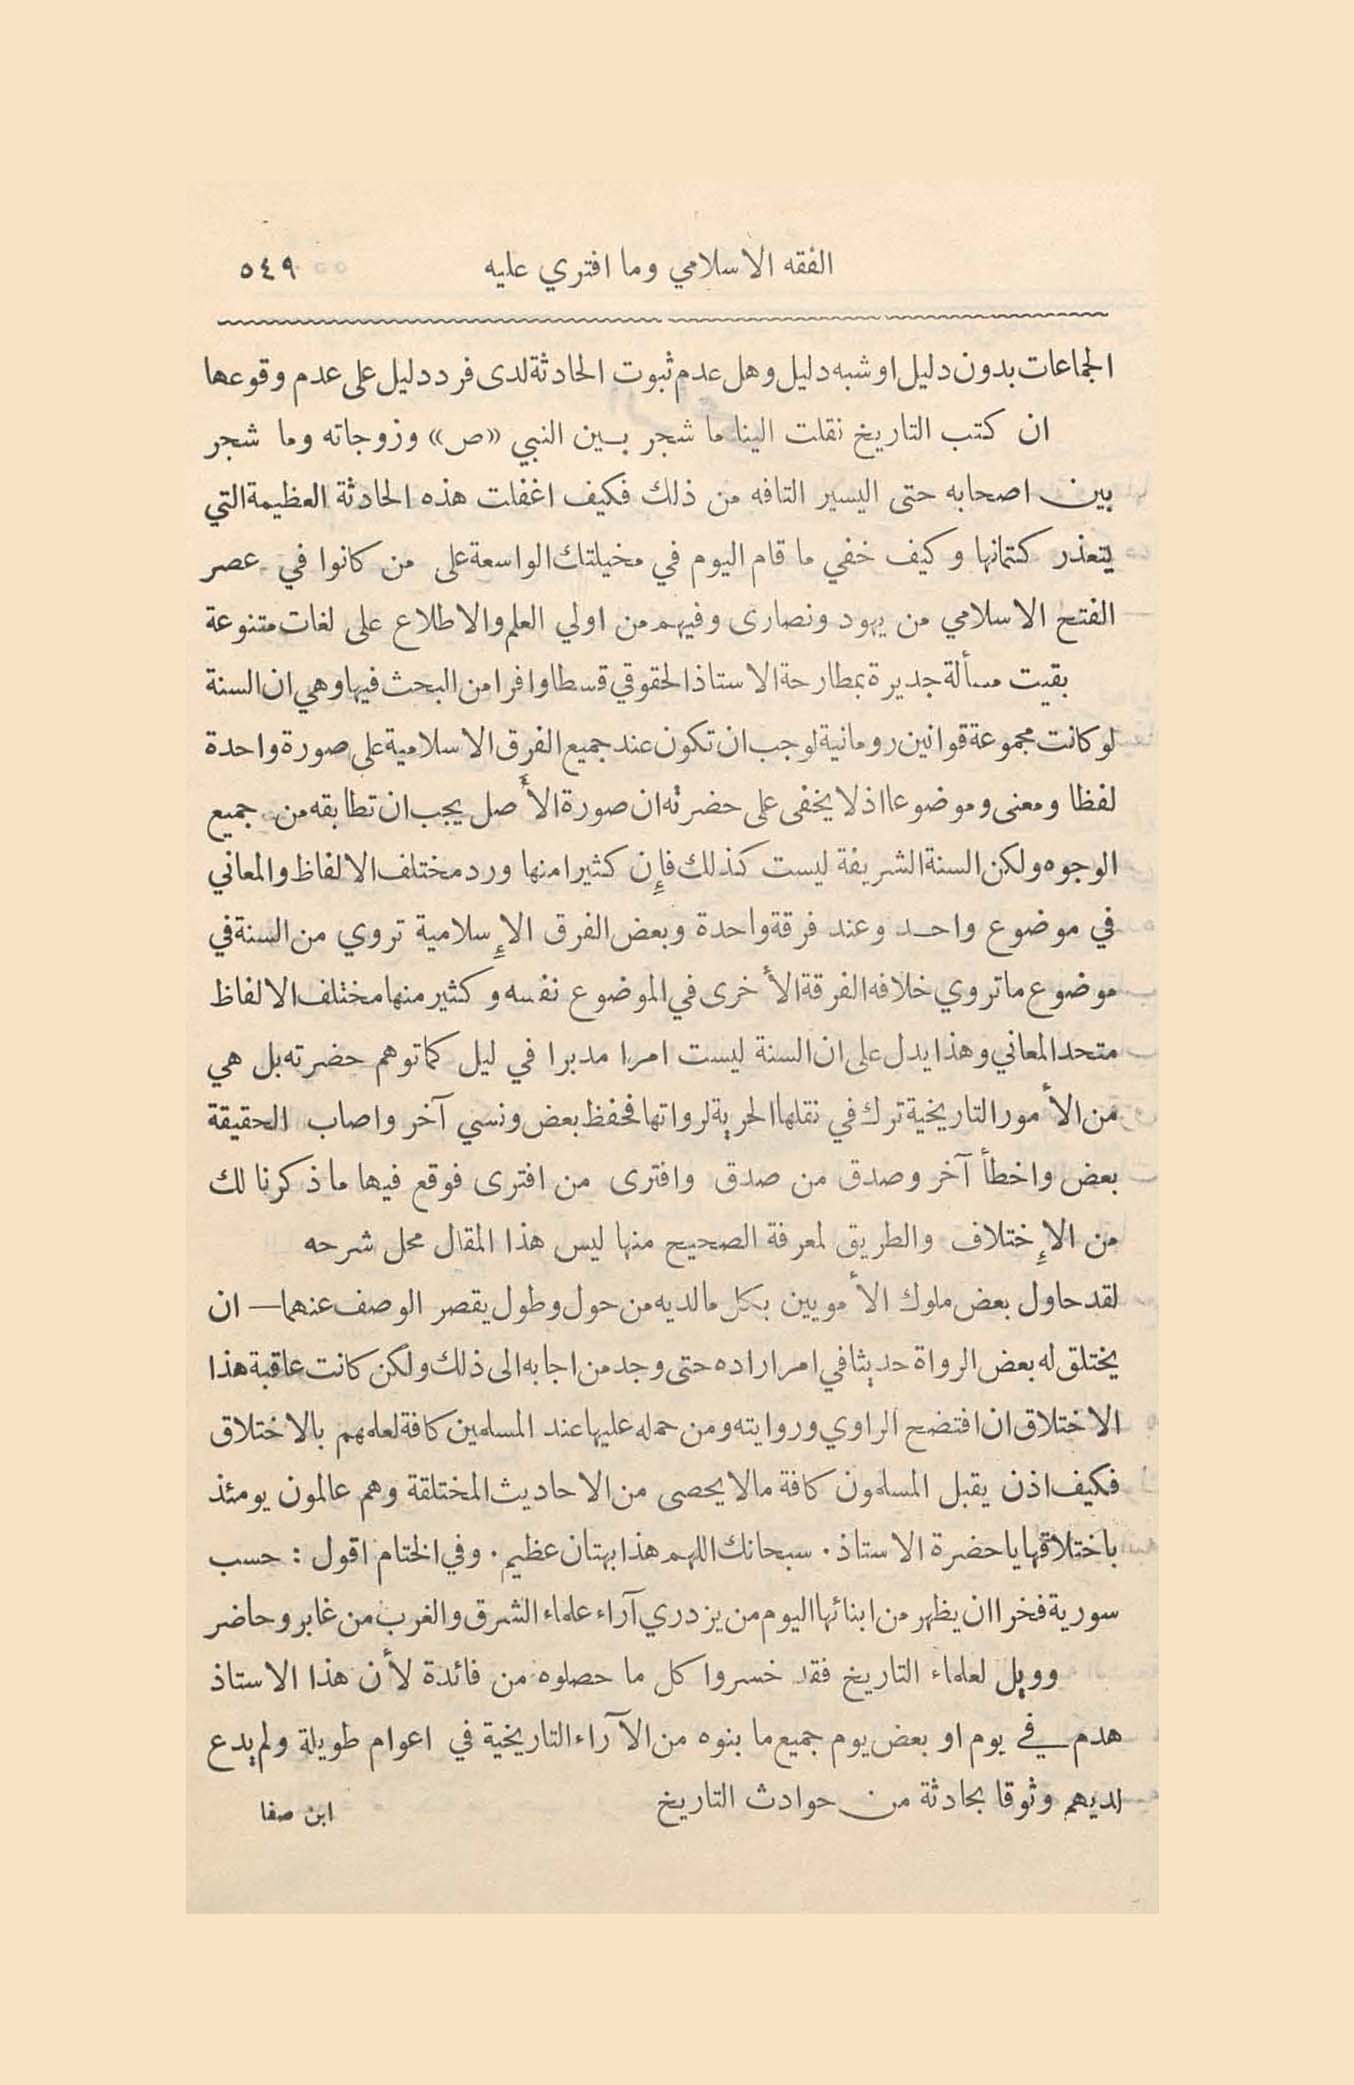 الفقه الاسلامي وما افتري عليه ٥٤٩
الجماعات بدون دليل او شبه دليل وهل عدم ثبوت الحادثة لدى فرد دليل على عدم وقوعها
ان كتب التاريخ نقلت الينا ما شجر بين النبي «ص» وزوجاته وما شجر
بين اصحابه حتى اليسير التافه من ذلك فكيف اغفلت هذه الحادثة العظيمة التي
يتعذر كتمانها وكيف خفي ما قام اليوم في مخيلتك الواسعة على من كانوا في عصر
الفتح الاسلامي من يهود ونصارى وفيهم من اولي العلم والاطلاع على لغات متنوعة
بقيت مسألة جديرة بمطارحة الاستاذ الحقوقي قسطا وافرا من البحث فيها وهي ان السنة
لو كانت مجموعة قوانين رومانية لوجب ان تكون عند جميع الفرق الاسلامية على صورة واحدة
لفظا ومعنى وموضوعا اذ لا يخفى على حضرته ان صورة الأصل يجب ان تطابقه من جميع
الوجوه ولكن السنة الشريفة ليست كذلك فإن كثيرا منها ورد مختلف الالفاظ والمعاني
في موضوع واحد وعند فرقة واحدة وبعض الفرق الإسلامية تروي من السنة في
موضوع ما تروي خلافه الفرقة الأخرى في الموضوع نفسه وكثير منها مختلف الالفاظ
متحد المعاني وهذا يدل على ان السنة ليست امرا مدبرا في ليل كما توهم حضرته بل هي
من الأمور التاريخية ترك في نقلها الحرية لرواتها فحفظ بعض ونسي آخر واصاب الحقيقة
بعض واخطأ آخر وصدق من صدق وافترى من افترى فوقع فيها ما ذكرنا لك
من الإختلاف والطريق لمعرفة الصحيح منها ليس هذا المقال محل شرحه
لقد حاول بعض ملوك الأمويين بكل ما لديه من حول وطول يقصر الوصف عنهما— ان
يختلق له بعض الرواة حديثا في امر اراده حتى وجد من اجابه الى ذلك ولكن كانت عاقبة هذا
الاختلاق ان افتضح الراوي وروايته ومن حمله عليها عند المسلمين كافة لعلمهم بالاختلاق
فكيف اذن يقبل المسلمون كافة ما لا يحصى من الاحاديث المختلقة وهم عالمون يومئذ
باختلاقها يا حضرة الاستاذ . سبحانك اللهم هذا بهتان عظيم . وفي الختام اقول : حسب
سورية فخرا ان يظهر من ابنائها اليوم من يزدري آراء علماء الشرق والغرب من غابر وحاضر
وويل لعلماء التاريخ فقد خسروا كل ما حصلوه من فائدة لأن هذا الاستاذ
هدم في يوم او بعض يوم جميع ما بنوه من الآراء التاريخية في اعوام طويلة ولم يدع
لديهم وثوقا بحادثة من حوادث التاريخ ابن صفا